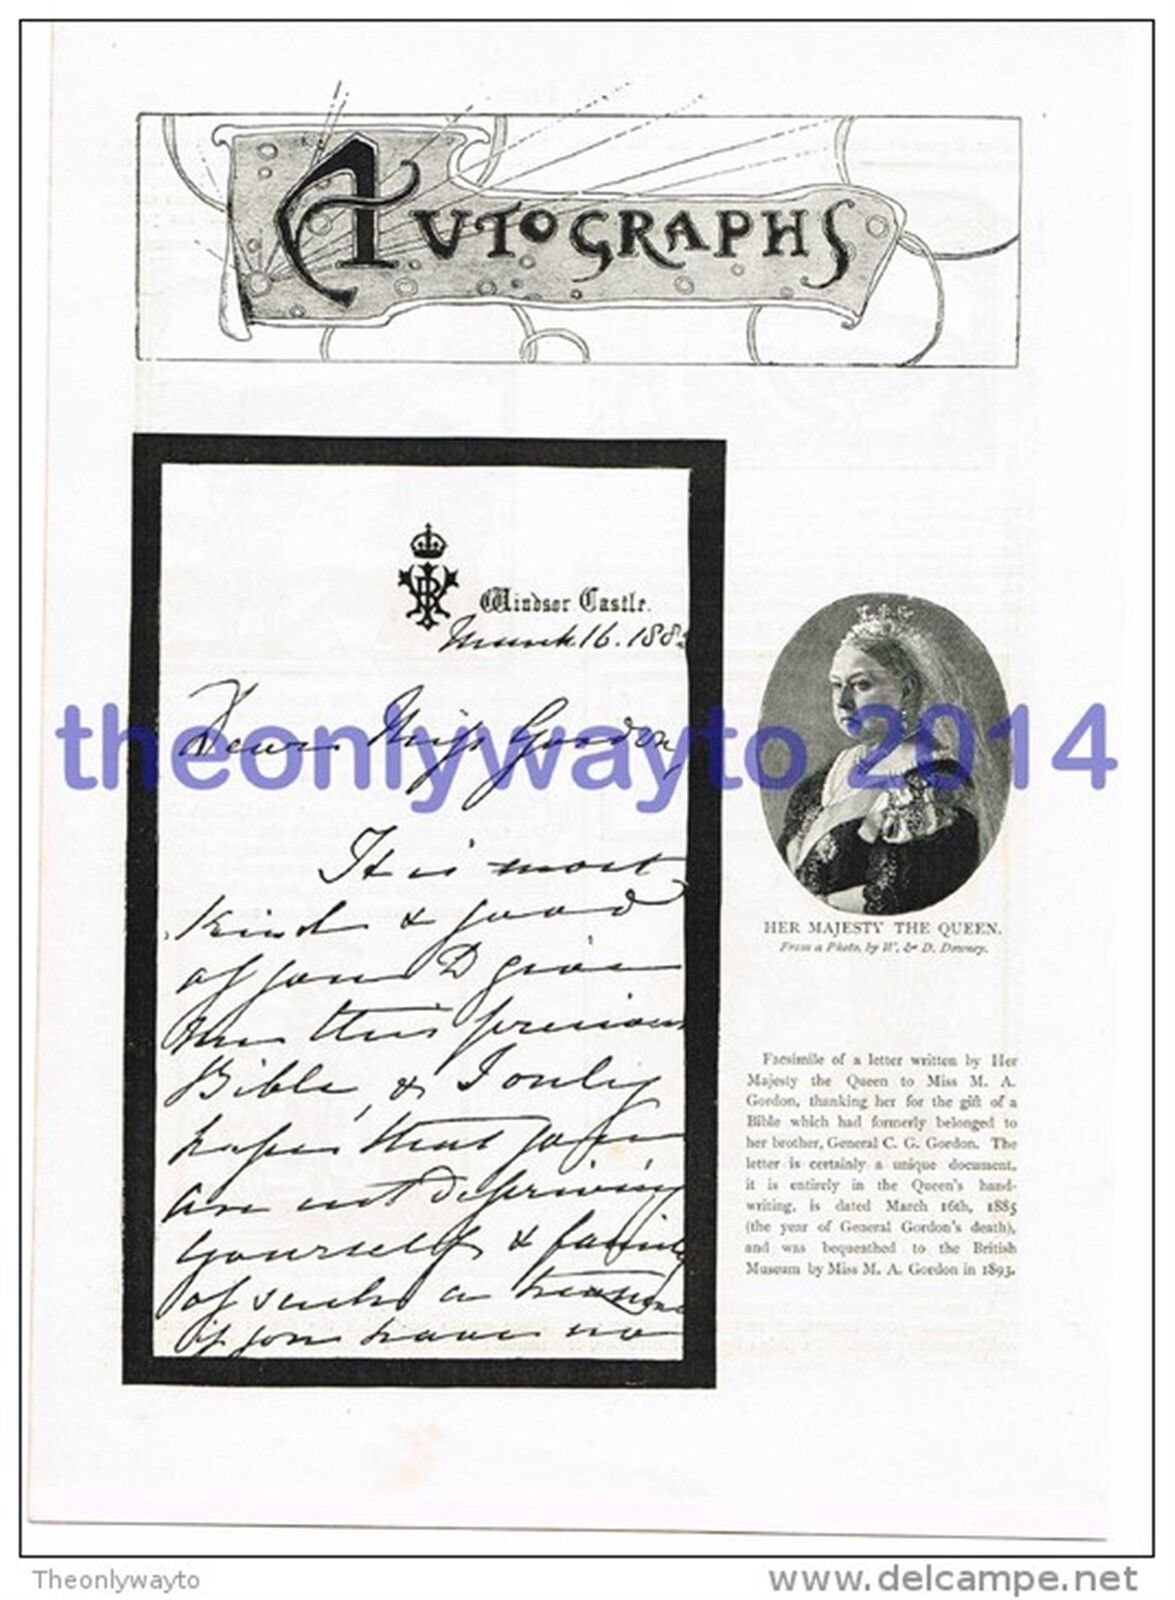 AUTOGRAPHS
VRI
Windsor Castle.
March 16. 1885
Dear Miss Gordon,
It is most
kind & good
of you to give
me this precious
Bible, & I only
hope that you
are not depriving
yourself & family
of such a treasure
if you have no
theonlywayto 2014
HER MAJESTY THE QUEEN.
From a Photo. by W. & D. Downey.
Facsimile of a letter written by Her
Majesty the Queen to Miss M. A.
Gordon, thanking her for the gift of a
Bible which had formerly belonged to
her brother, General C. G. Gordon. The
letter is certainly a unique document,
it is entirely in the Queen's hand-
writing, is dated March 16th, 1885
(the year of General Gordon's death),
and was bequeathed to the British
Museum by Miss M. A. Gordon in 1893.
Theonlywayto
www.delcampe.net